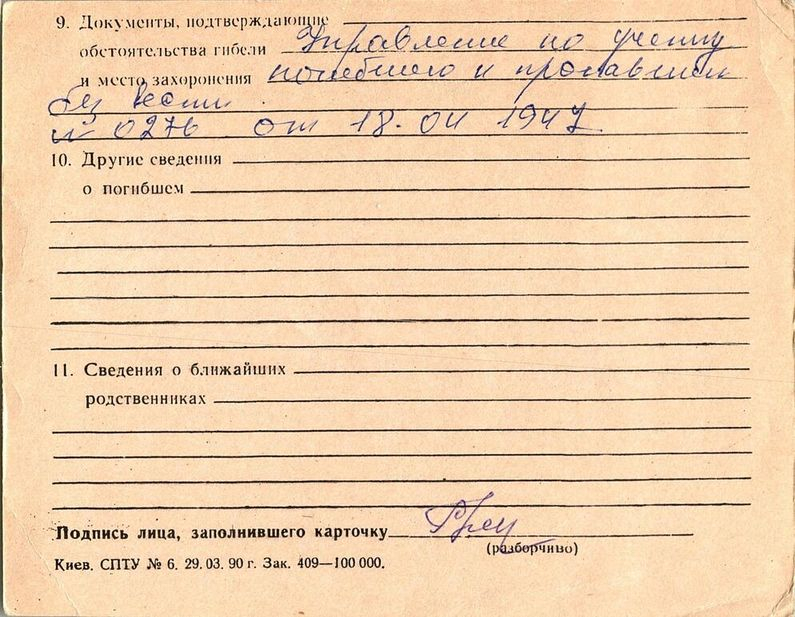 9. Документы, подтверждающие
обстоятельства гибели Управление по учету
и место захоронения погибшего и пропавших
без вести
№ 0276 от 18.04 1947
10. Другие сведения
о погибшем
11. Сведения о ближайших
родственниках
Подпись лица, заполнившего карточку
(разборчиво)
Киев. СПТУ № 6. 29.03.90 г. Зак. 409—100 000.